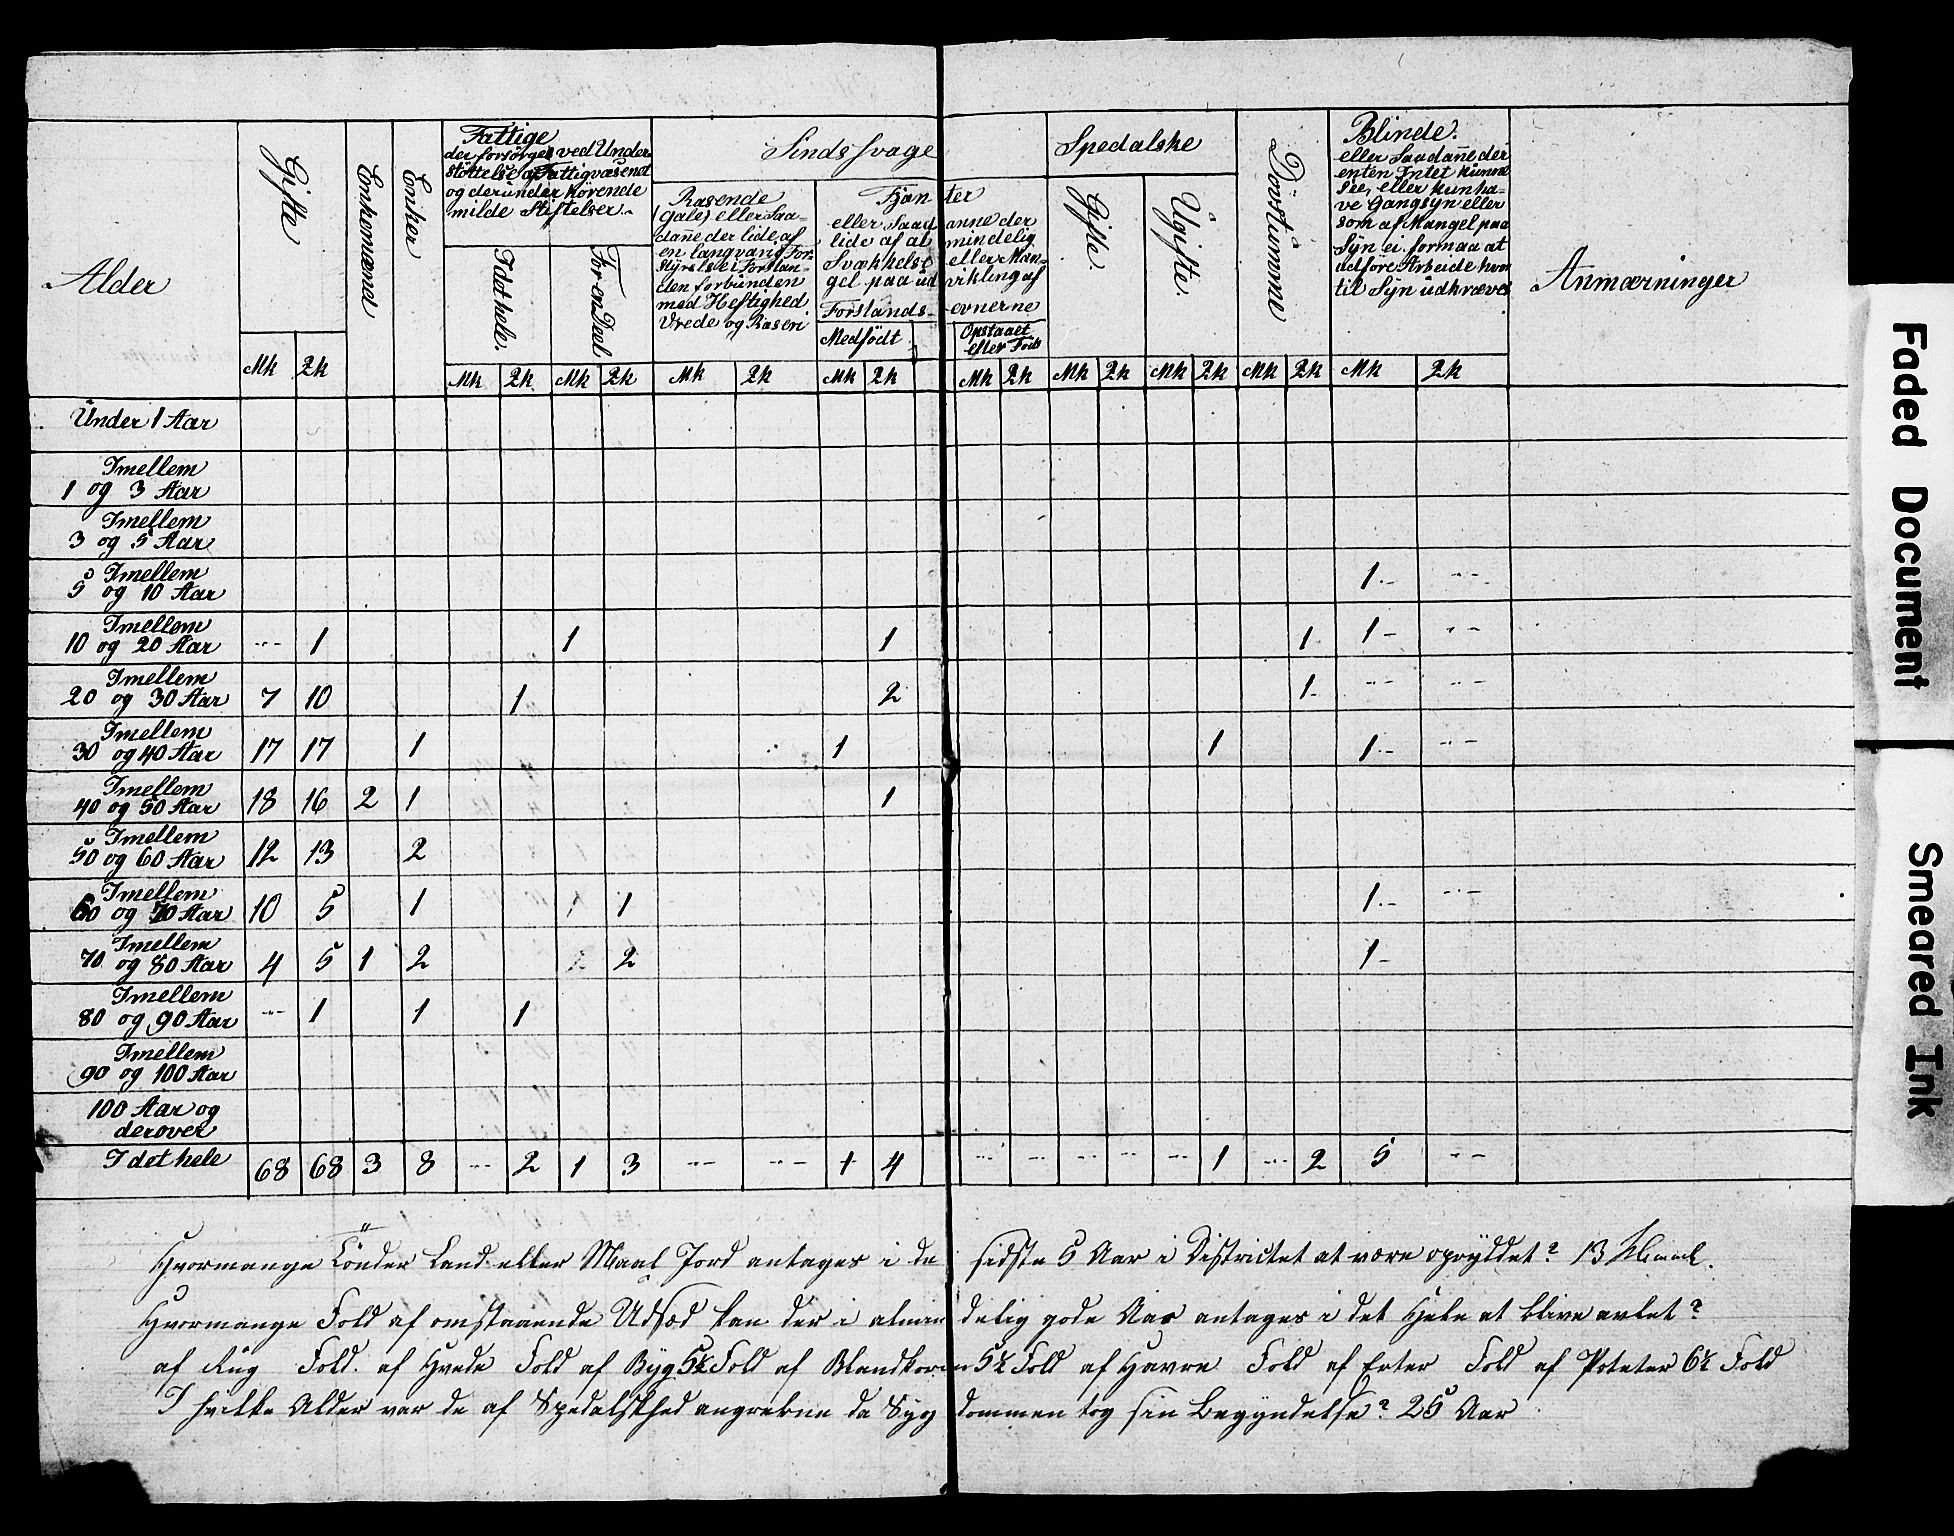 Alder
Gifte
Enkemænd
Enker
Fattige
der forsørges ved Under-
støttelse af Fattigvæsenet
og derunder hørende
milde Stiftelser.
I det hele.
For en Deel
Sindssvage
Rasende
(gale) eller Saa-
danne der lide af
en langvarig For-
styrelse i Forstan-
den forbunden
med Heftighed
Vrede og Raseri
Fjanter
eller Saadanne der
lide af almindelig
Svækkelse eller Man-
gel paa udvikling af
Forstands-evnerne
Medfödt
Opstaaet
efter Föds
Spedalske
Gifte.
Ugifte.
Dövstumme
Blinde.
eller Saadanne der
enten Intet kunne
see, eller kun ha-
ve Gangsyn eller
som af Mangel paa
Syn ei formaa at
udföre Arbeide hvor
til Syn udkræves
Anmærninger
Mk 2k Mk 2k Mk 2k Mk 2k Mk 2k Mk 2k Mk 2k Mk 2k Mk 2k Mk 2k
Under 1 Aar
Imellem
1 og 3 Aar
Imellem
3 og 5 Aar
Imellem
5 og 10 Aar 1 --
Imellem
10 og 20 Aar -- 1 1 1 1 1 --
Imellem
20 og 30 Aar 7 10 1 2 1 -- --
Imellem
30 og 40 Aar 17 17 1 1 1 1 --
Imellem
40 og 50 Aar 18 16 2 1 1
Imellem
50 og 60 Aar 12 13 2
Imellem
60 og 70 Aar 10 5 1 1 1 --
Imellem
70 og 80 Aar 4 5 1 2 2 1
Imellem
80 og 90 Aar -- 1 1 1
Imellem
90 og 100 Aar
100 Aar og
derover
I det hele 68 68 3 8 -- 2 1 3 -- -- 1 4 -- -- -- -- -- 1 -- 2 5 --
Hvormange Tönder Land eller Maal Jord antages i de sidste 5 Aar i Districtet at være opryddet? 13 Maal.
Hvormange Fold af omstaaende Udsæd kan der i almindelig gode Aar antages i det Hele at blive avlet?
af Rug Fold. af Hvede Fold af Byg 5½ Fold af Blandkorn 5½ Fold af Havre Fold af Erter Fold af Poteter 6½ Fold
I hvilke Alder var de af Spedalskhed angrebne da Sygdommen tog sin Begyndelse? 25 Aar
Faded Document
Smeared Ink